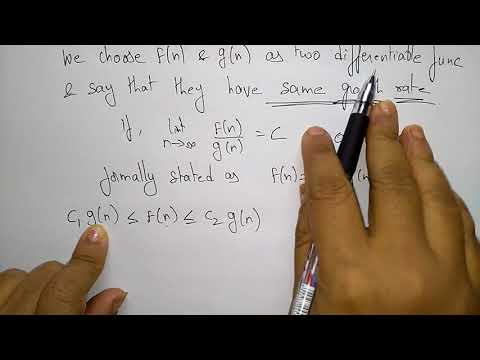 We choose f(n) & g(n) as two differentiable func
& say that they have same growth rate
If, lmt n→∞ f(n)/g(n) = C
formally stated as f(n)= (n)
C₁ g(n) ≤ f(n) ≤ C₂ g(n)